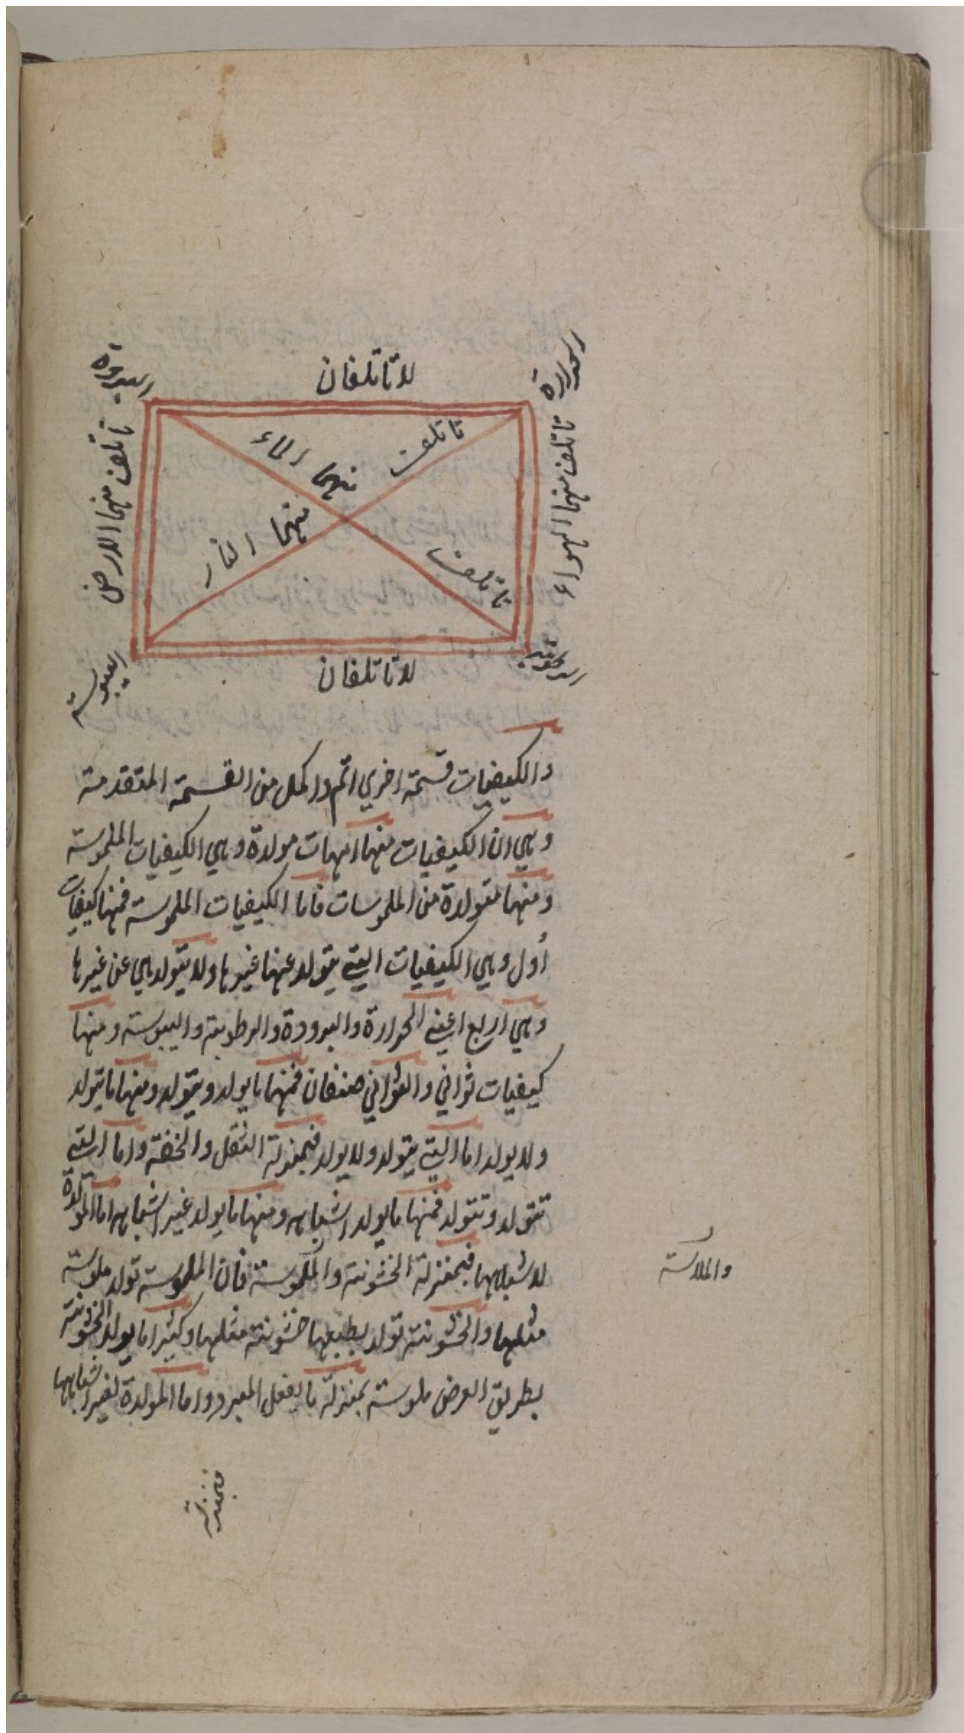 الحرارة
لا تاتلفان
البرودة
تاتلف منهما الهواء
تاتلف منهما النار
تاتلف منهما الماء
تاتلف منهما الارض
الرطوبة
لا تاتلفان
اليبوسة
والكيفيات قسمة اخري اتم واكمل من القسمة المتقدمة
وهي ان الكيفيات منها امهات مولدة وهي الكيفيات الملموسة
ومنها متولدة من الملموسات فاما الكيفيات الملموسة فمنها كيفيات
أول وهي الكيفيات التي يتولد عنها غيرها ولا يتولد هي عن غيرها
وهي اربع اعني الحرارة والبرودة والرطوبة واليبوسة ومنها
كيفيات ثواني والثواني صنفان فمنها ما يولد ويتولد ومنها ما يتولد
ولا يولد اما التي يتولد ولا يولد فبمنزلة الثقل والخفة واما التي
تتولد وتتولد فمنها ما يولد اشباهه ومنها ما يولد غير اشباهه اما المولدة
لاشباهها فبمنزلة الخشونة والملموسة فان الملموسة تولد ملوسة
والملاسة
مثلها والخشونة تولد بطبعها خشونة مثلها وكثيرا ما يولد الخشونة
بطريق العرض ملوسة بمنزلة ما يفعل المبرد واما المولدة لغير اشباهها
فبمنزلة